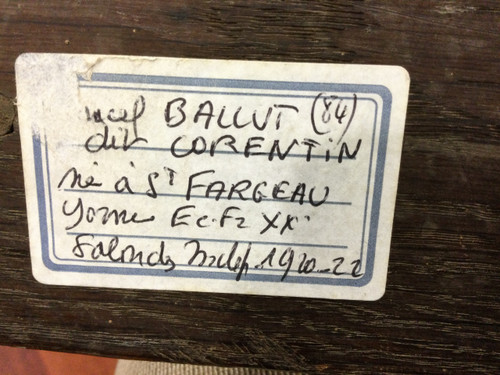 BALLUT (84)
dit CORENTIN
né à St FARGEAU
Yonne Ec. Fz XX
Salon des Indep. 1920-22